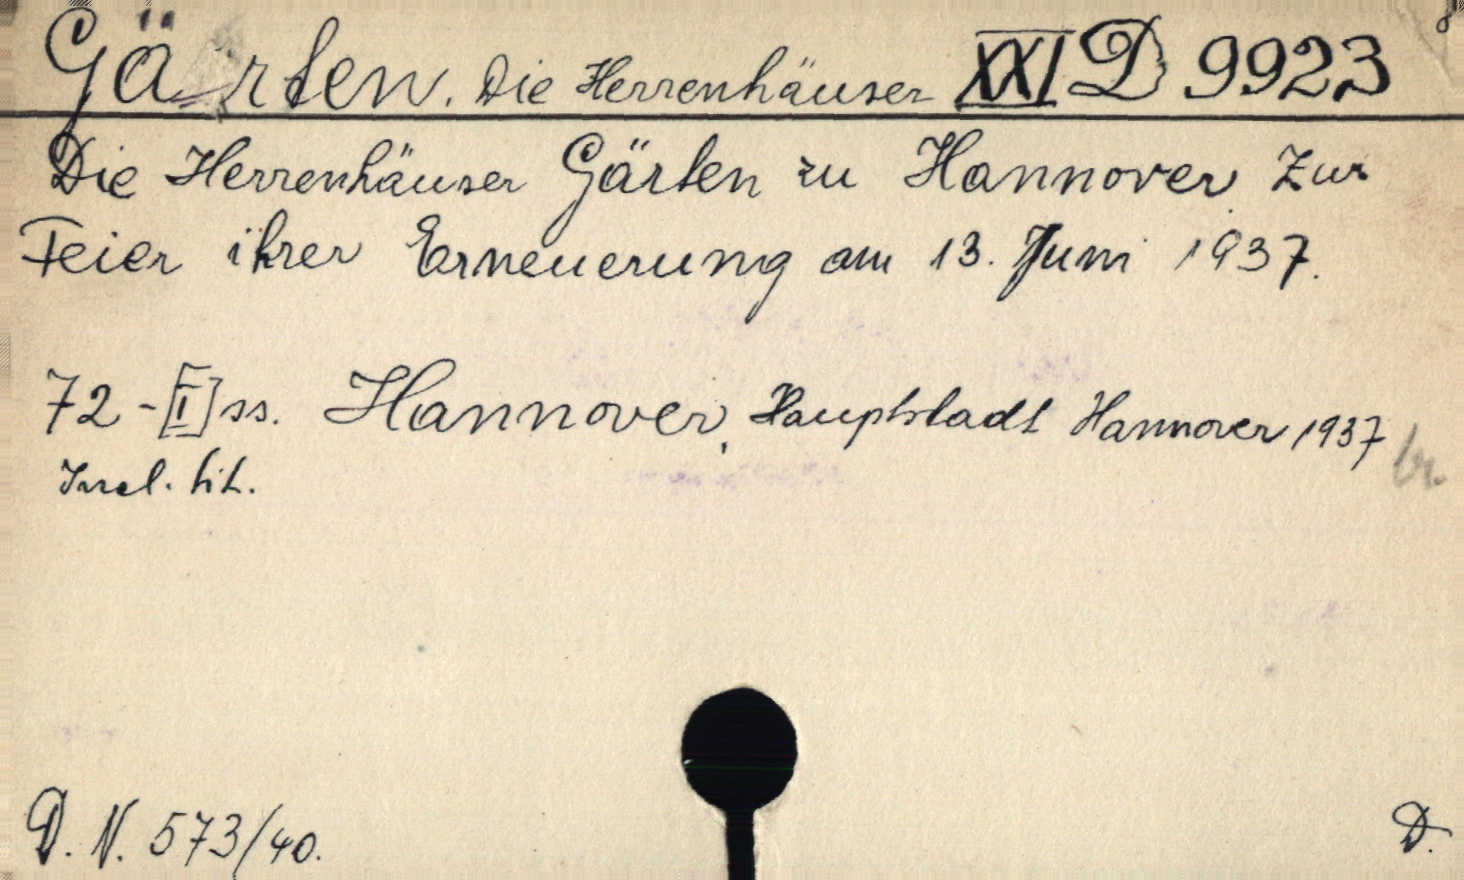 Gärten. Die Herrenhäuser XXI D 9923
Die Herrenhäuser Gärten zu Hannover Zur
Feier ihrer Erneuerung am 13. Juni 1937.
72-[I] ss. Hannover, Hauptstadt Hannover 1937
br.
Incl. tit.
D. N. 573/40.
D.